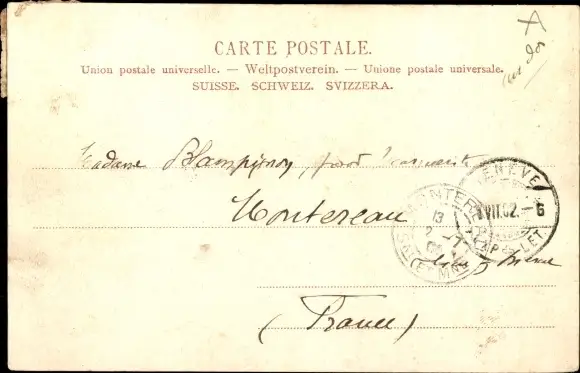 CARTE POSTALE.
Union postale universelle. — Weltpostverein. — Unione postale universale.
SUISSE. SCHWEIZ. SVIZZERA.
Madame Blampignon,
Montereau
(France)
GENÈVE
VII.02.-6
EXP. LET.
MONTEREAU
13